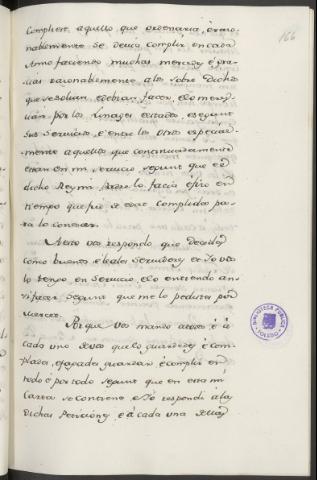 166
Complirse aquello que ordenaria, è razo-
nablemente se devia complir en cada
Anno faciendo muchas mercedes è gra-
cias razonablemente a los sobre Dichos
que solian
por los Linages è estados, è segunt
sus Servicios, è entre los otros especial-
mente a aquellos que continuadamente
estan en mi servicio, segunt que el
dicho Rey mi Padre lo facia è fizo en
tiempo que fue de edat complida pa-
ra lo conoscer.
A esto vos respondo que decides
como buenos è leales Servidores, et Yo vos
lo tengo en Servicio, è lo entiendo an-
si facer, segunt que me lo pedistes por
merced.
Porque vos mando a todos è à
cada uno de vos que lo guardedes è com-
plades, è fagades guardar è complir en
todo è por todo segunt que en esta mi
Carta se contiene, è Yo respondi à las
dichas Peticiones è à cada una dellas
BIBLIOTECA PÚBLICA
TOLEDO